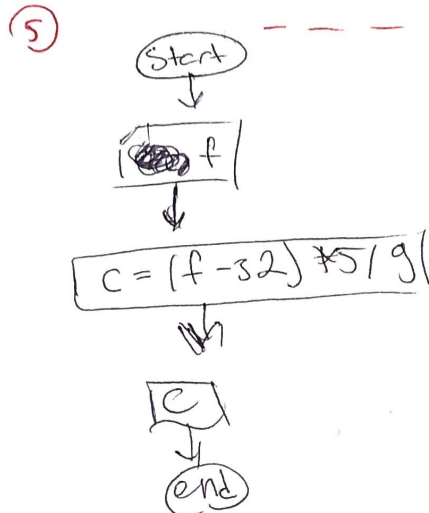 5
Start
f
c = (f - 32) * 5 / 9
c
end